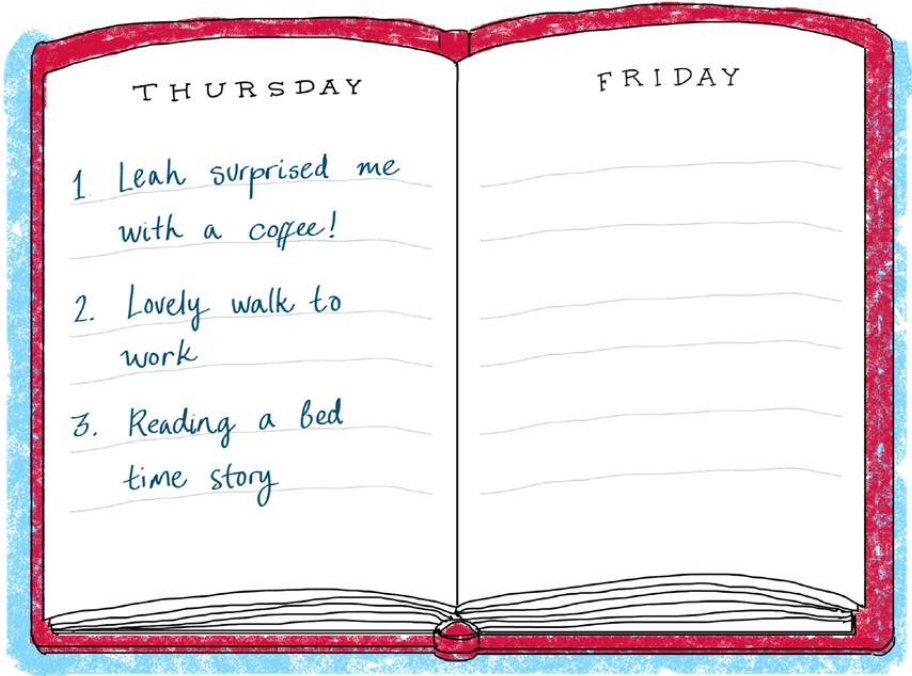 THURSDAY
1. Leah surprised me
with a coffee!
2. Lovely walk to
work
3. Reading a bed
time story
FRIDAY